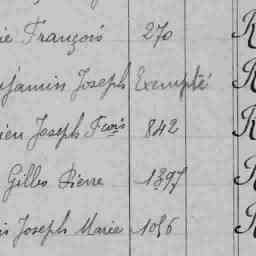 ie François 270 R
njamin Joseph Exempté R
ien Joseph Fcois 842 R
Gilles Pierre 1397 R
is Joseph Marie 1056 R